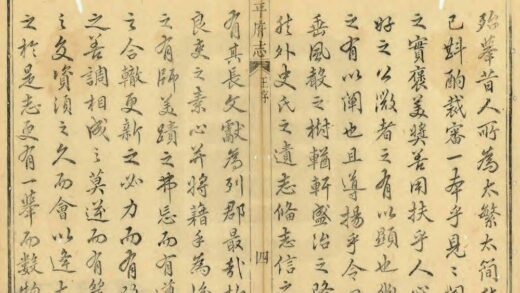 舉昔人所為太繁太簡
已斟酌裁審一本乎見
之實褒美獎善用扶乎人心
好之公微者之有以顯也
之有以闡也且導揚乎令
岳風教之樹輶軒盛治之
外史氏之遺志脩志信之
平府志
王序
四
有其長文獻為列郡最哉
良吏之素心并將藉手為
之有師美蹟之弗忘而有
之合轍更新之必力而有
之善調相成之莫逆而有
之文資須之久而會以逢
之於是志更有一舉而數